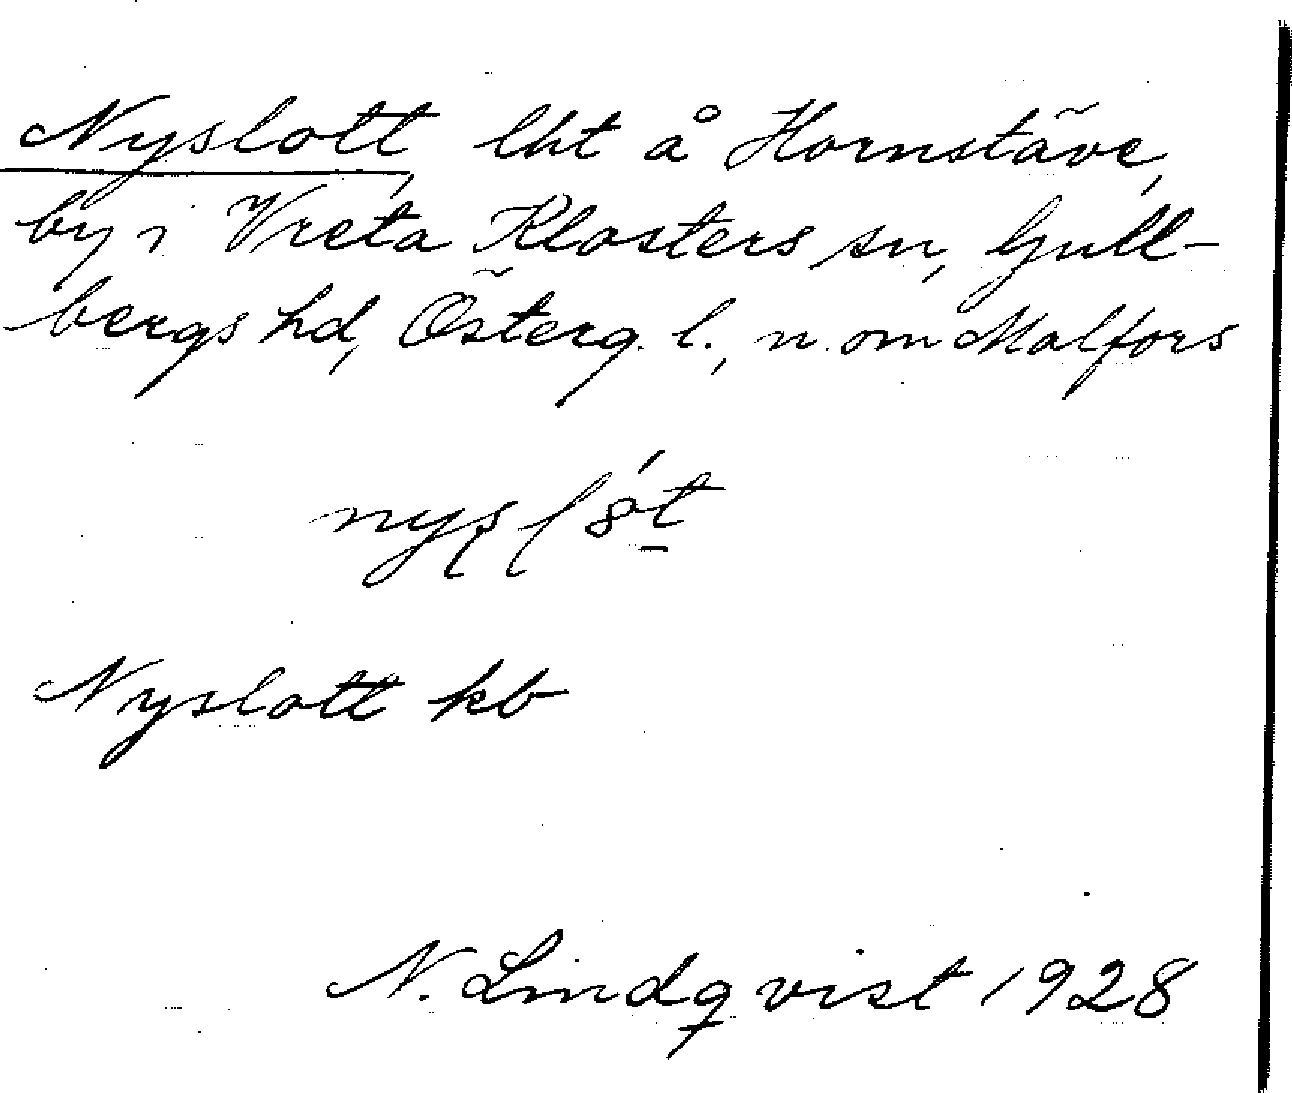 Nyslott, lht å Hornstäve,
by i Vreta Klosters sn, Gull-
bergs hd, Österg. l., n. om Malfors
Nyslott kb
N. Lindqvist 1928